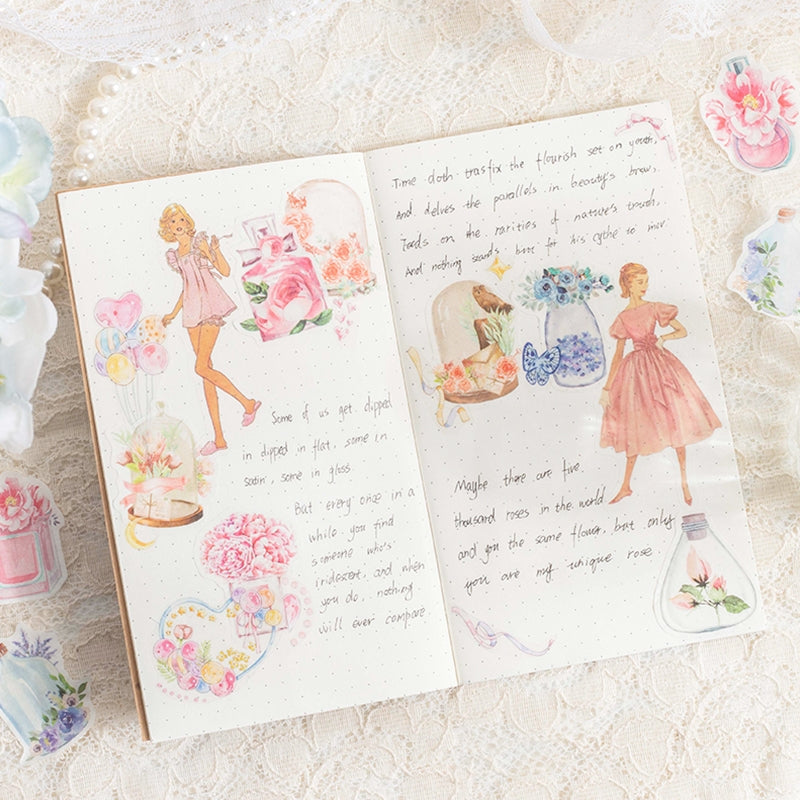 Some of us get dipped
in dipped in flat, some in
satin, some in gloss.
But every once in a
while you find
someone who's
iridescent, and when
you do, nothing
will ever compare.
Time doth trasfix the flourish set on youth,
And delves the parallels in beauty's brow,
Feeds on the rarities of nature's truth,
And nothing stands for his scythe to mow.
Maybe there are five
thousand roses in the world
and you the same flower, but only
you are my unique rose